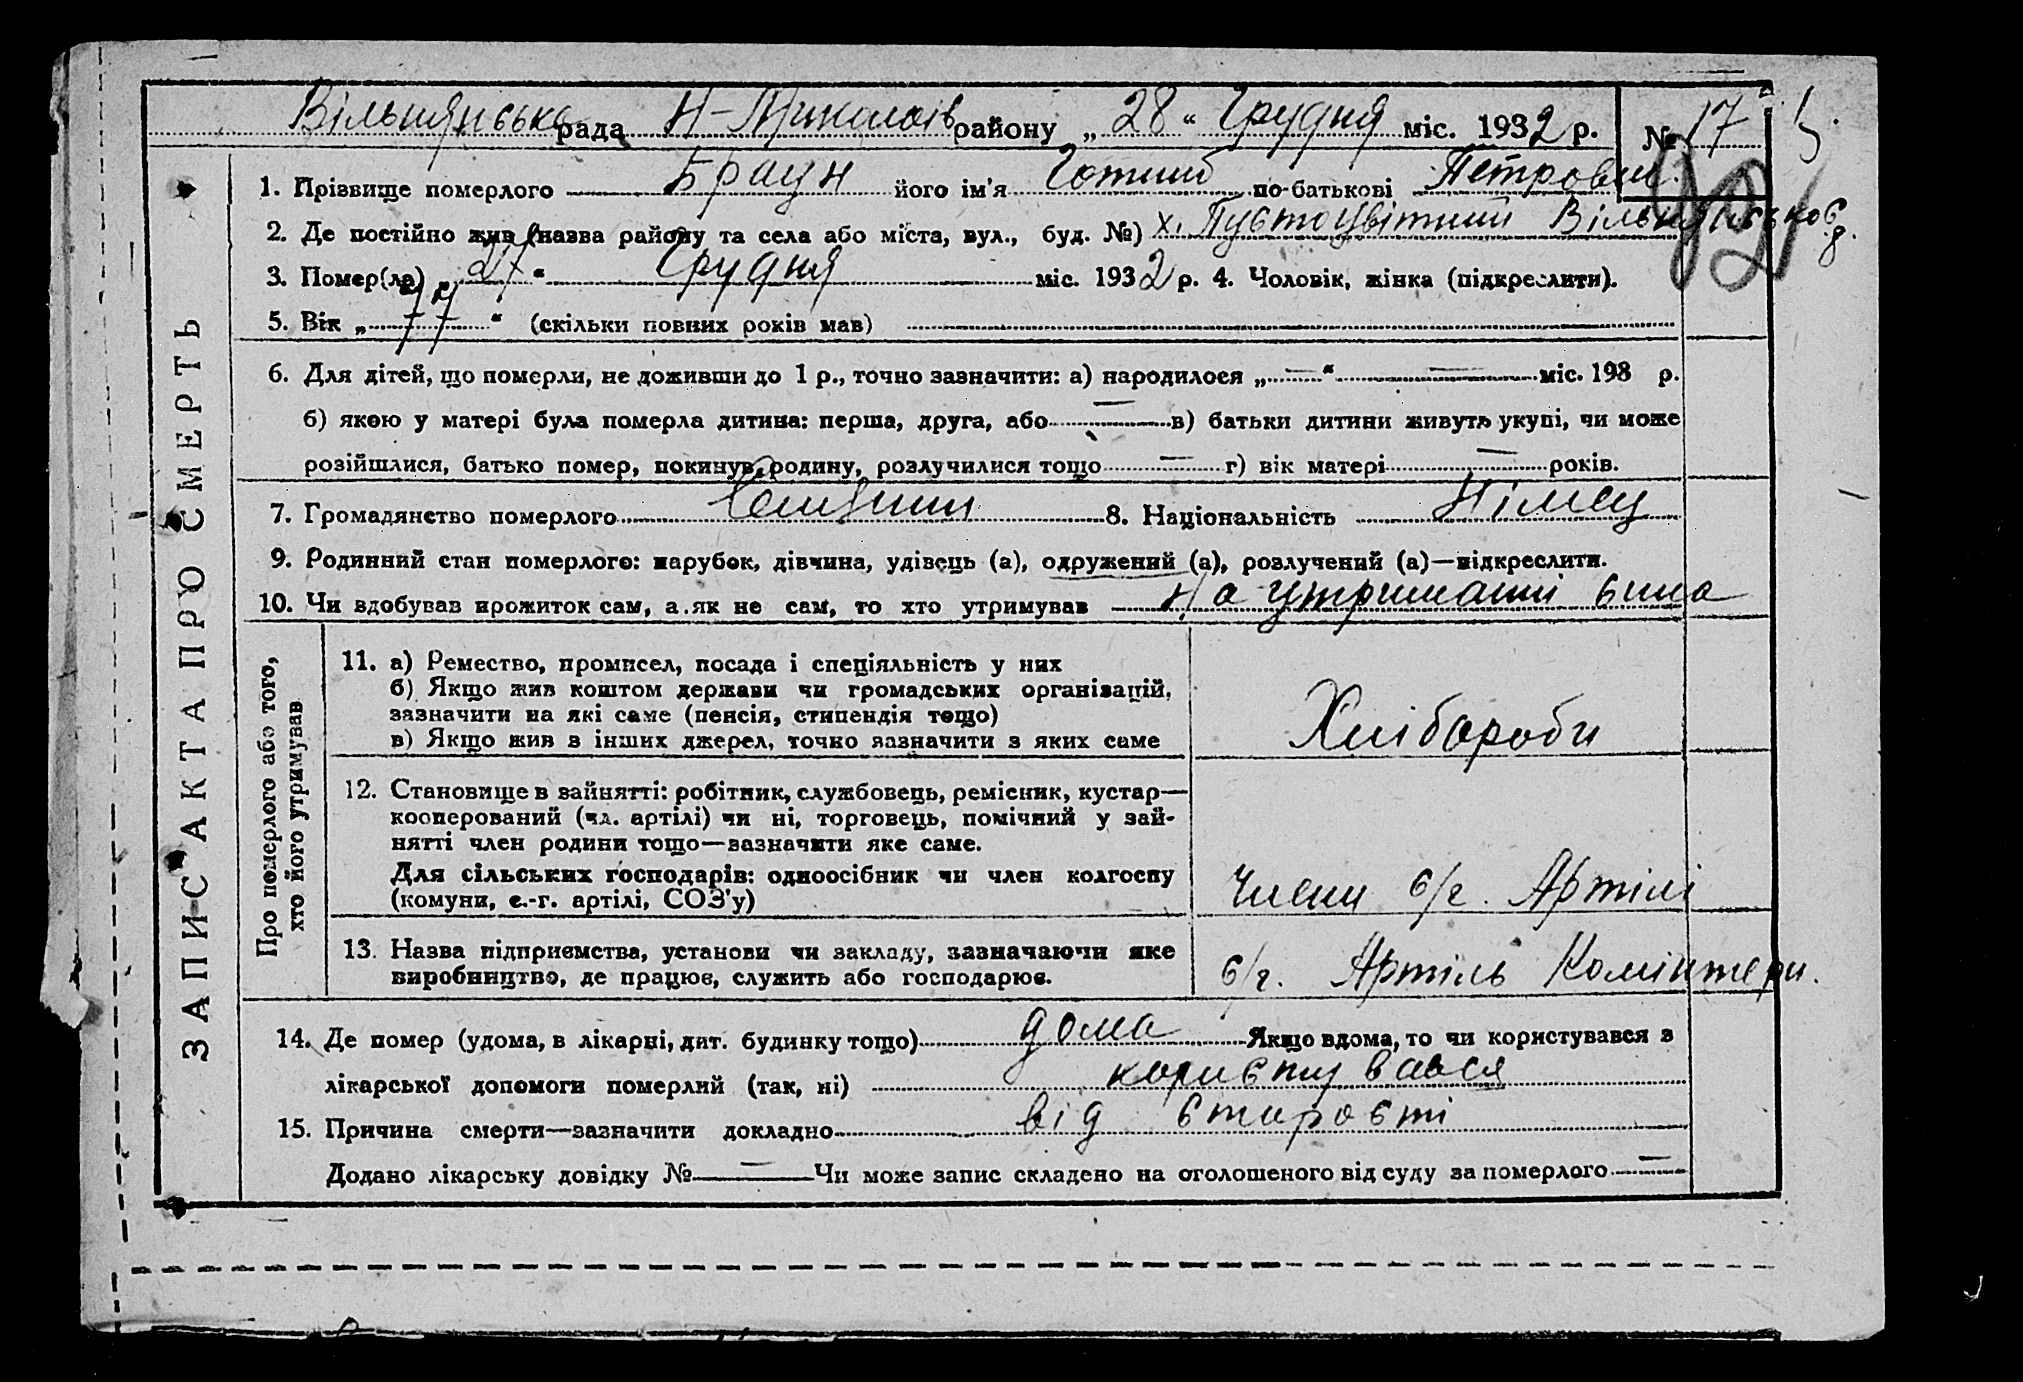 Вільнянська рада Н-Миколаїв району „28“ Грудня міс. 1932 р. № 17
1. Прізвище померлого Браун його ім'я Готлиб по-батькові Петрович
2. Де постійно жив (назва району та села або міста, вул., буд. №) х. Пустоцвітний Вільнянсько
3. Помер(ла) „27“ Грудня міс. 1932 р. 4. Чоловік, жінка (підкреслити).
5. Вік „77“ (скільки повних років мав)
6. Для дітей, що померли, не доживши до 1 р., точно зазначити: а) народилося „—“ — міс. 193 р.
б) якою у матері була померла дитина: перша, друга, або — в) батьки дитини живуть укупі, чи може
розійшлися, батько помер, покинув родину, розлучилися тощо — г) вік матері — років.
7. Громадянство померлого 8. Національність Німец
9. Родинний стан померлого: парубок, дівчина, удівець (а), одружений (а), розлучений (а)—підкреслити.
10. Чи здобував прожиток сам, а як не сам, то хто утримував На утриманні сина
ЗАПИС АКТА ПРО СМЕРТЬ
Про померлого або того,
хто його утримував
11. а) Ремество, промисел, посада і спеціяльність у них
б) Якщо жив коштом держави чи громадських організацій,
зазначити на які саме (пенсія, стипендія тощо)
в) Якщо жив з інших джерел, точно зазначити з яких саме
Хлібороби
12. Становище в зайнятті: робітник, службовець, ремісник, кустар—
кооперований (чл. артілі) чи ні, торговець, помічний у зай-
нятті член родини тощо—зазначити яке саме.
Для сільських господарів: одноосібник чи член колгоспу
(комуни, с.-г. артілі, СОЗ'у)
Члени с/г. Артілі
13. Назва підприємства, установи чи закладу, зазначаючи яке
виробництво, де працює, служить або господарює.
с/г. Артіль Комінтерн.
14. Де помер (удома, в лікарні, дит. будинку тощо) дома Якщо вдома, то чи користувався з
лікарської допомоги померлий (так, ні) користувався
15. Причина смерти—зазначити докладно від старости
Додано лікарську довідку № — Чи може запис складено на оголошеного від суду за померлого —